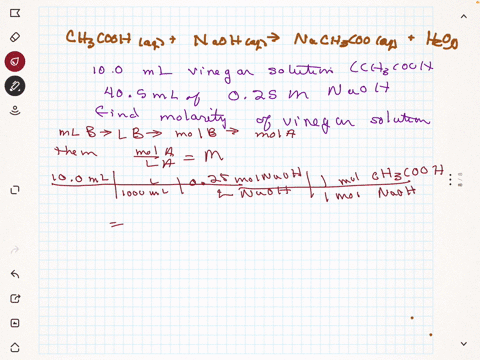 CH3COOH (aq) + NaOH (aq) → NaCH3COO (aq) + H2O
10.0 mL vinegar solution (CH3COOH
40.5mL of 0.25 M NaOH
find molarity of vinegar solution
mL B → L B → mol B → mol A
them mol A / L A = M
10.0 mL | L | 0.25 mol NaOH | 1 mol CH3COOH
| 1000 mL | L NaOH | 1 mol NaOH
=